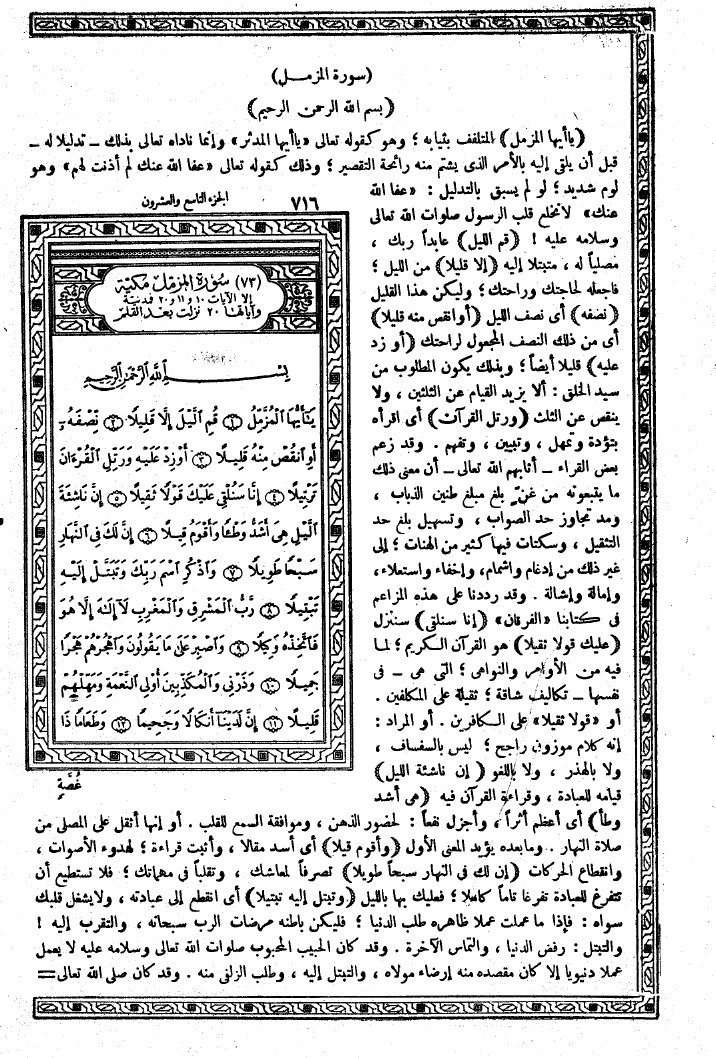 (سورة المزمـل)
(بسم الله الرحمن الرحيم)
(ياأيها المزمل) المتلفف بثيابه ؛ وهو كقوله تعالى «ياأيها المدثر» وإنما ناداه تعالى بذلك ــ تدليلا له ــ
قبل أن يلقى إليه بالأمر الذى يشتم منه رائحة التقصير ؛ وذلك كقوله تعالى «عفا الله عنك لم أذنت لهم» وهو
لوم شديد ؛ لو لم يسبق بالتدليل : «عفا الله
عنك» لانخلع قلب الرسول صلوات الله تعالى
وسلامه عليه ! (قم الليل) عابداً ربك ،
مصلياً له ، متبتلا إليه (إلا قليلا) من الليل ؛
فاجعله لحاجتك وراحتك ؛ وليكن هذا القليل
(نصفه) أى نصف الليل (أو انقص منه قليلا)
أى من ذلك النصف المجعول لراحتك (أو زد
عليه) قليلا أيضاً ؛ وبذلك يكون المطلوب من
سيد الخلق : ألا يزيد القيام عن الثلثين ، ولا
ينقص عن الثلث (ورتل القرآن) أى اقرأه
بتؤدة وتمهل ، وتبيين ، وتفهم . وقد زعم
بعض القراء ــ أثابهم الله تعالى ــ أن معنى ذلك
ما يتبعونه من غنّ بلغ مبلغ طنين الذباب ،
ومد تجاوز حد الصواب ، وتسهيل بلغ حد
التثقيل ، وسكتات فيها كثير من الهنات ؛ إلى
غير ذلك من إدغام وإشمام، وإخفاء واستعلاء،
وإمالة وإشالة . وقد رددنا على هذه المزاعم
فى كتابنا «الفرقان» (إنا سنلقى) سننزل
(عليك قولا ثقيلا) هو القرآن الكريم ؛ لما
فيه من الأوامر والنواهى ؛ التى هى ــ فى
نفسها ــ تكاليف شاقة ؛ ثقيلة على المكلفين .
أو «قولا ثقيلا» على الكافرين . أو المراد :
إنه كلام موزون راجح ؛ ليس بالسفساف ،
ولا بالهذر ، ولا باللغو (إن ناشئة الليل)
قيامه للعبادة ، وقراءة القرآن فيه (هى أشد
وطأ) أى أعظم أثراً ، وأجزل نفعاً : لحضور الذهن ، وموافقة السمع للقلب . أو إنها أثقل على المصلى من
صلاة النهار . ومابعده يؤيد المعنى الأول (وأقوم قيلا) أى أسد مقالا ، وأثبت قراءة ؛ لهدوء الأصوات ،
وانقطاع الحركات (إن لك فى النهار سبحاً طويلا) تصرفاً لمعاشك ، وتقلباً فى مهماتك ؛ فلا تستطيع أن
تتفرغ للعبادة تفرغا تاماً كاملا ؛ فعليك بها بالليل (وتبتل إليه تبتيلا) أى انقطع إلى عبادته ، ولايشغل قلبك
سواه : فإذا ما عملت عملا ظاهره طلب الدنيا ؛ فليكن باطنه مرضات الرب سبحانه ، والتقرب إليه !
والتبتل : رفض الدنيا ، والتماس الآخرة . وقد كان الحبيب المحبوب صلوات الله تعالى وسلامه عليه لا يعمل
عملا دنيويا إلا كان مقصده منه إرضاء مولاه ، والتبتل إليه ، وطلب الزلفى منه . وقد كان صلى الله تعالى =
٧١٦ الجزء التاسع والعشرون
(٧٣) سورة المزمل مكية
إلا الآيات ١٠ و ١١ و ٢٠ فمدنية
وآياتها ٢٠ نزلت بعد القلم
بِسْمِ اللَّهِ الرَّحْمَٰنِ الرَّحِيمِ
يَٰٓأَيُّهَا ٱلْمُزَّمِّلُ ۝١ قُمِ ٱلَّيْلَ إِلَّا قَلِيلًا ۝٢ نِّصْفَهُۥٓ
أَوِ ٱنقُصْ مِنْهُ قَلِيلًا ۝٣ أَوْ زِدْ عَلَيْهِ وَرَتِّلِ ٱلْقُرْءَانَ
تَرْتِيلًا ۝٤ إِنَّا سَنُلْقِى عَلَيْكَ قَوْلًا ثَقِيلًا ۝٥ إِنَّ نَاشِئَةَ
ٱلَّيْلِ هِىَ أَشَدُّ وَطْـًٔا وَأَقْوَمُ قِيلًا ۝٦ إِنَّ لَكَ فِى ٱلنَّهَارِ
سَبْحًا طَوِيلًا ۝٧ وَٱذْكُرِ ٱسْمَ رَبِّكَ وَتَبَتَّلْ إِلَيْهِ
تَبْتِيلًا ۝٨ رَّبُّ ٱلْمَشْرِقِ وَٱلْمَغْرِبِ لَآ إِلَٰهَ إِلَّا هُوَ
فَٱتَّخِذْهُ وَكِيلًا ۝٩ وَٱصْبِرْ عَلَىٰ مَا يَقُولُونَ وَٱهْجُرْهُمْ هَجْرًا
جَمِيلًا ۝١٠ وَذَرْنِى وَٱلْمُكَذِّبِينَ أُو۟لِى ٱلنَّعْمَةِ وَمَهِّلْهُمْ
قَلِيلًا ۝١١ إِنَّ لَدَيْنَآ أَنكَالًا وَجَحِيمًا ۝١٢ وَطَعَامًا ذَا
غُصَّةٍ